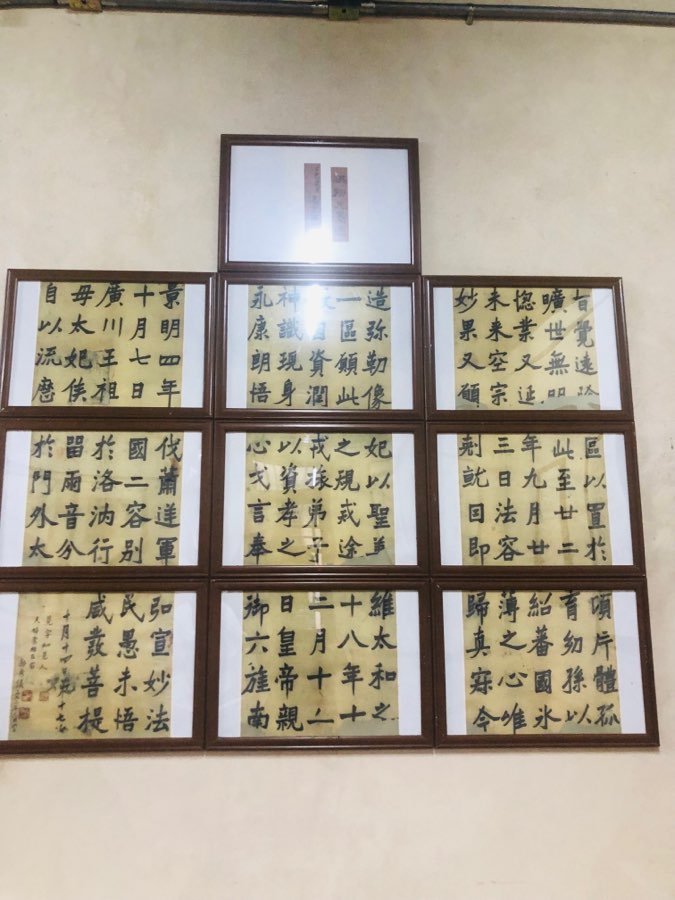 旨覺遠
曠世無明
惚業又延
未来空宗
妙果又願
造弥勒像
一區願此
目資潤
神識現身
永康朗悟
景明四年
十月七日
廣川王祖
毋太妃侯
自以流歷
區以置於
此至廿二
年九月廿
三日法容
剋就因即
妃以聖善
之規戒途
戎振弟子
以資孝之
心戈言奉
伐蕭逆軍
國二容別
於洛汭行
留兩音分
於門外太
頃片體孤
育幼孫以
紹蕃國氷
薄之心唯
歸真寐今
維太和之
十八年十
二月十一
日皇帝親
御六旌南
弘宣妙法
民愚未悟
咸發菩提
十月十四